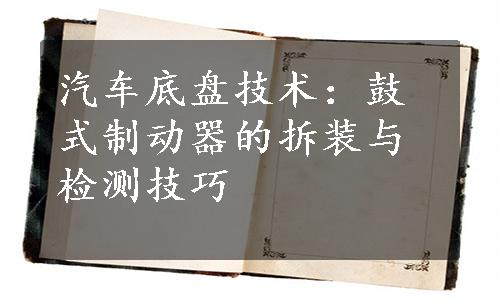 汽车底盘技术：鼓
式制动器的拆装与
检测技巧